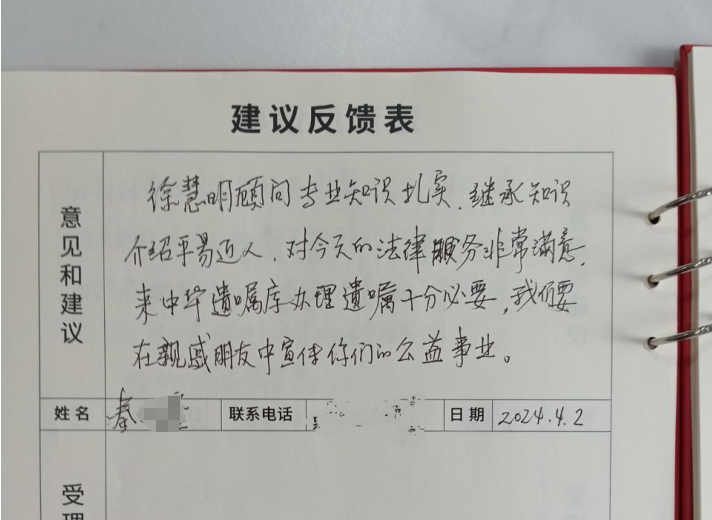 建议反馈表
意见和建议
徐慧明顾问专业知识扎实，继承知识
介绍平易近人，对今天的法律服务非常满意，
来中华遗嘱库办理遗嘱十分必要，我们要
在亲戚朋友中宣传你们的公益事业。
姓名 秦 联系电话 日期 2024.4.2
受理